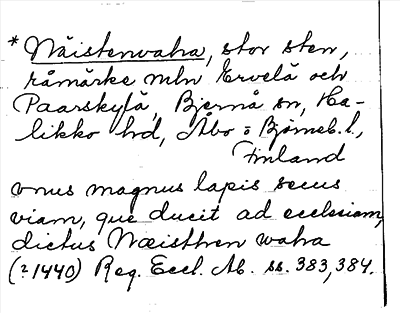 * Näistenvaha, stor sten,
råmärke mln Ervelä och
Paarskylä, Bjernå sn, Ha-
likko hd, Åbo o Björneb. l.,
Finland
vnus magnus lapis secus
viam, que ducit ad ecclesiam,
dictus Næisthen waha
(?1440) Reg. Eccl. Ab. ss. 383, 384.